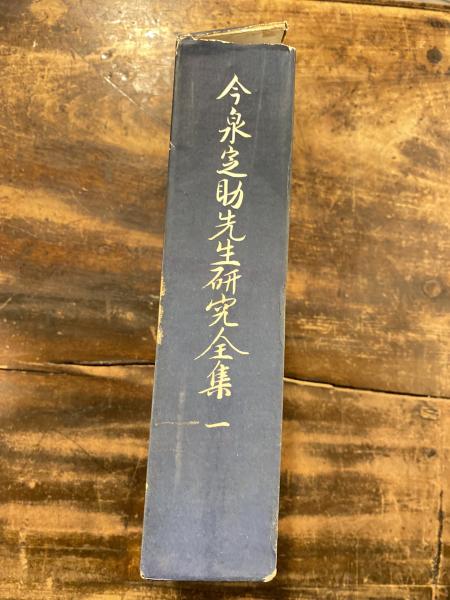 今泉定助先生研究全集 一